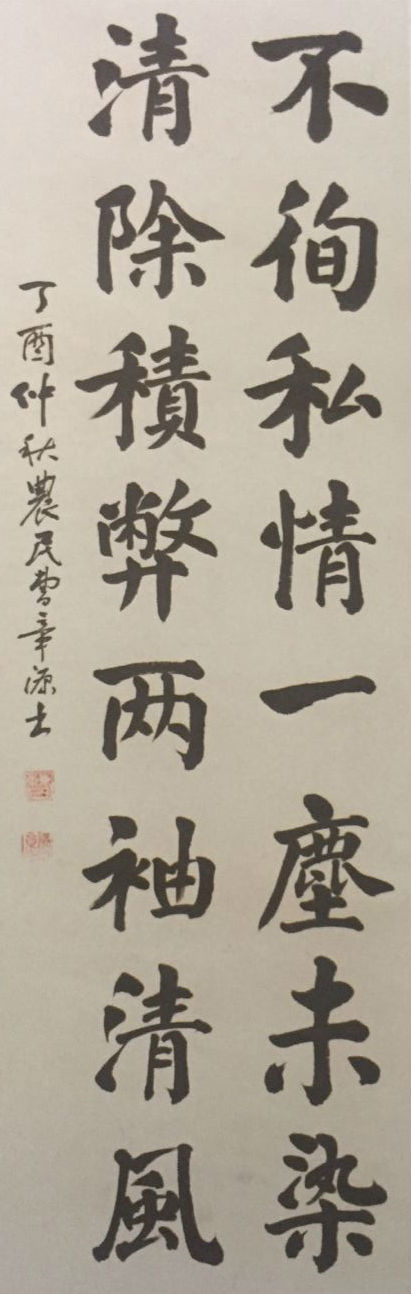 不徇私情一塵未染
清除積弊两袖清風
丁酉仲秋農民曹章源士